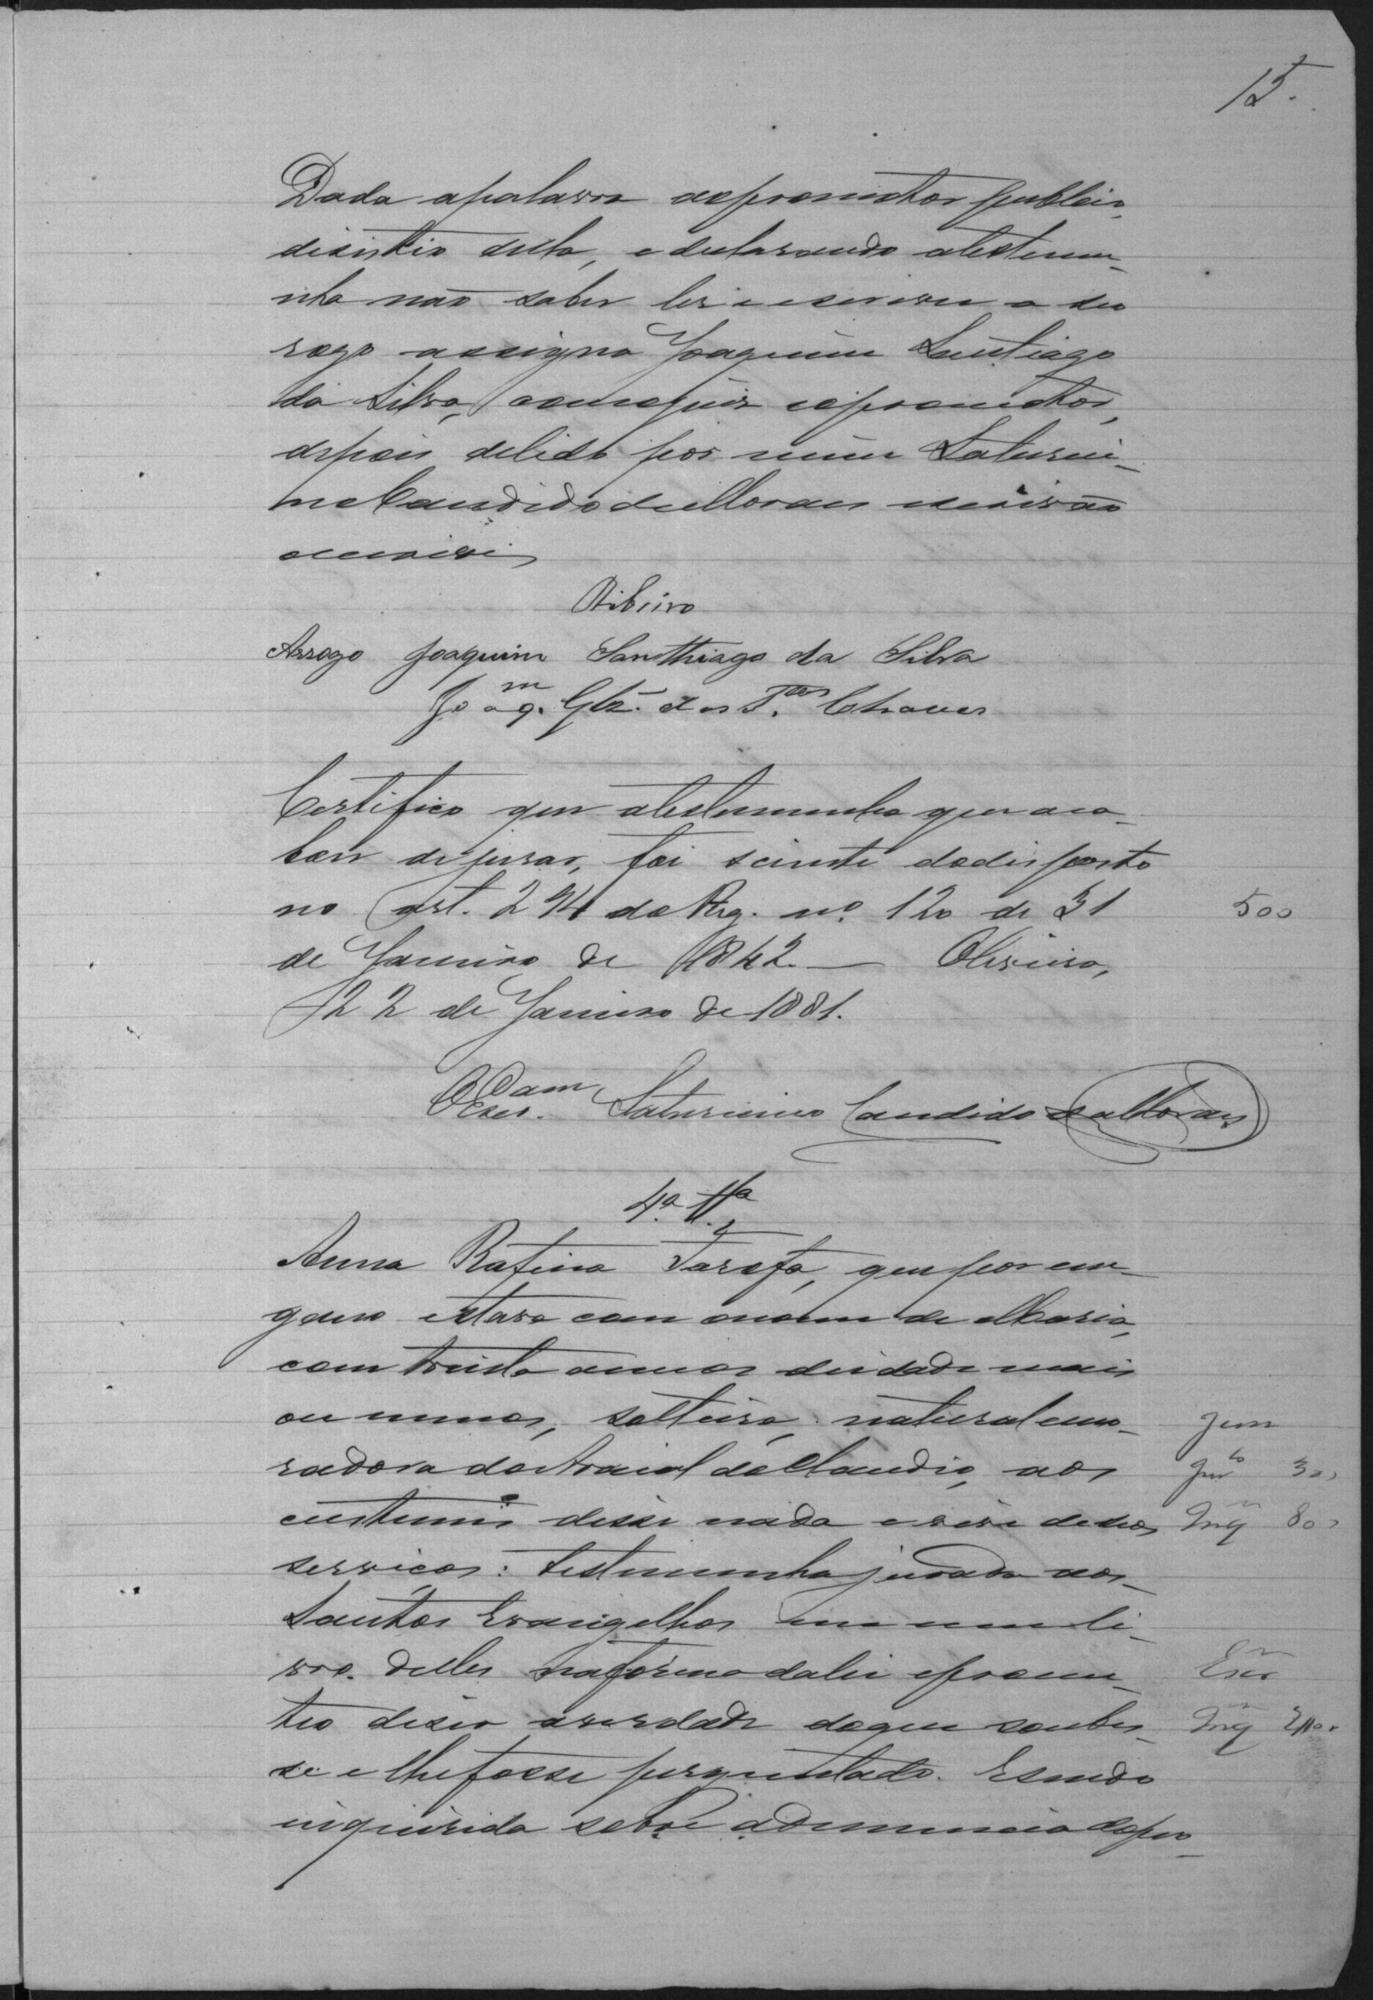 15.
Dada a palavra ao promotor publico,
disistio della, e declarando a testemu-
nha não saber ler e escrever a seu
rogo assigna Joaquim Santiago
da Silva, com o juiz e o promotor,
depois de lido por mim Saturni-
no Candido de Moraes escrivão
o escrivi
Ribeiro
Arrogo Joaquim Santhiago da Silva
Joaqm. Glz. dos S.tos Chaves
Certifico que a testemunha que aca-
bou de jurar, foi sciente do disposto
no art. 294 do Reg. nº 120 de 31
500
de Janeiro de 1842. — Oliveira,
22 de Janeiro de 1881.
O Escr. Saturnino Candido de Moraes
4ª Tª
Anna Rufina Tarefa, que por en-
gano estava com o nome de Maria,
com trinta annos de idade mais
ou menos, solteira, natural e mo-
radora do Arraial do Claudio, aos
Jurto 300
custumis disse nada e vive de seos
Inq 800
serviços: testemunha jurada aos
Santos Evangelhos em um li-
vro delles na forma da lei e prome-
Escr
teo diser a verdade do que soubes-
Inq
se e lhe fosse perguntado. E sendo
inquirida sobre a denuncia do pro-